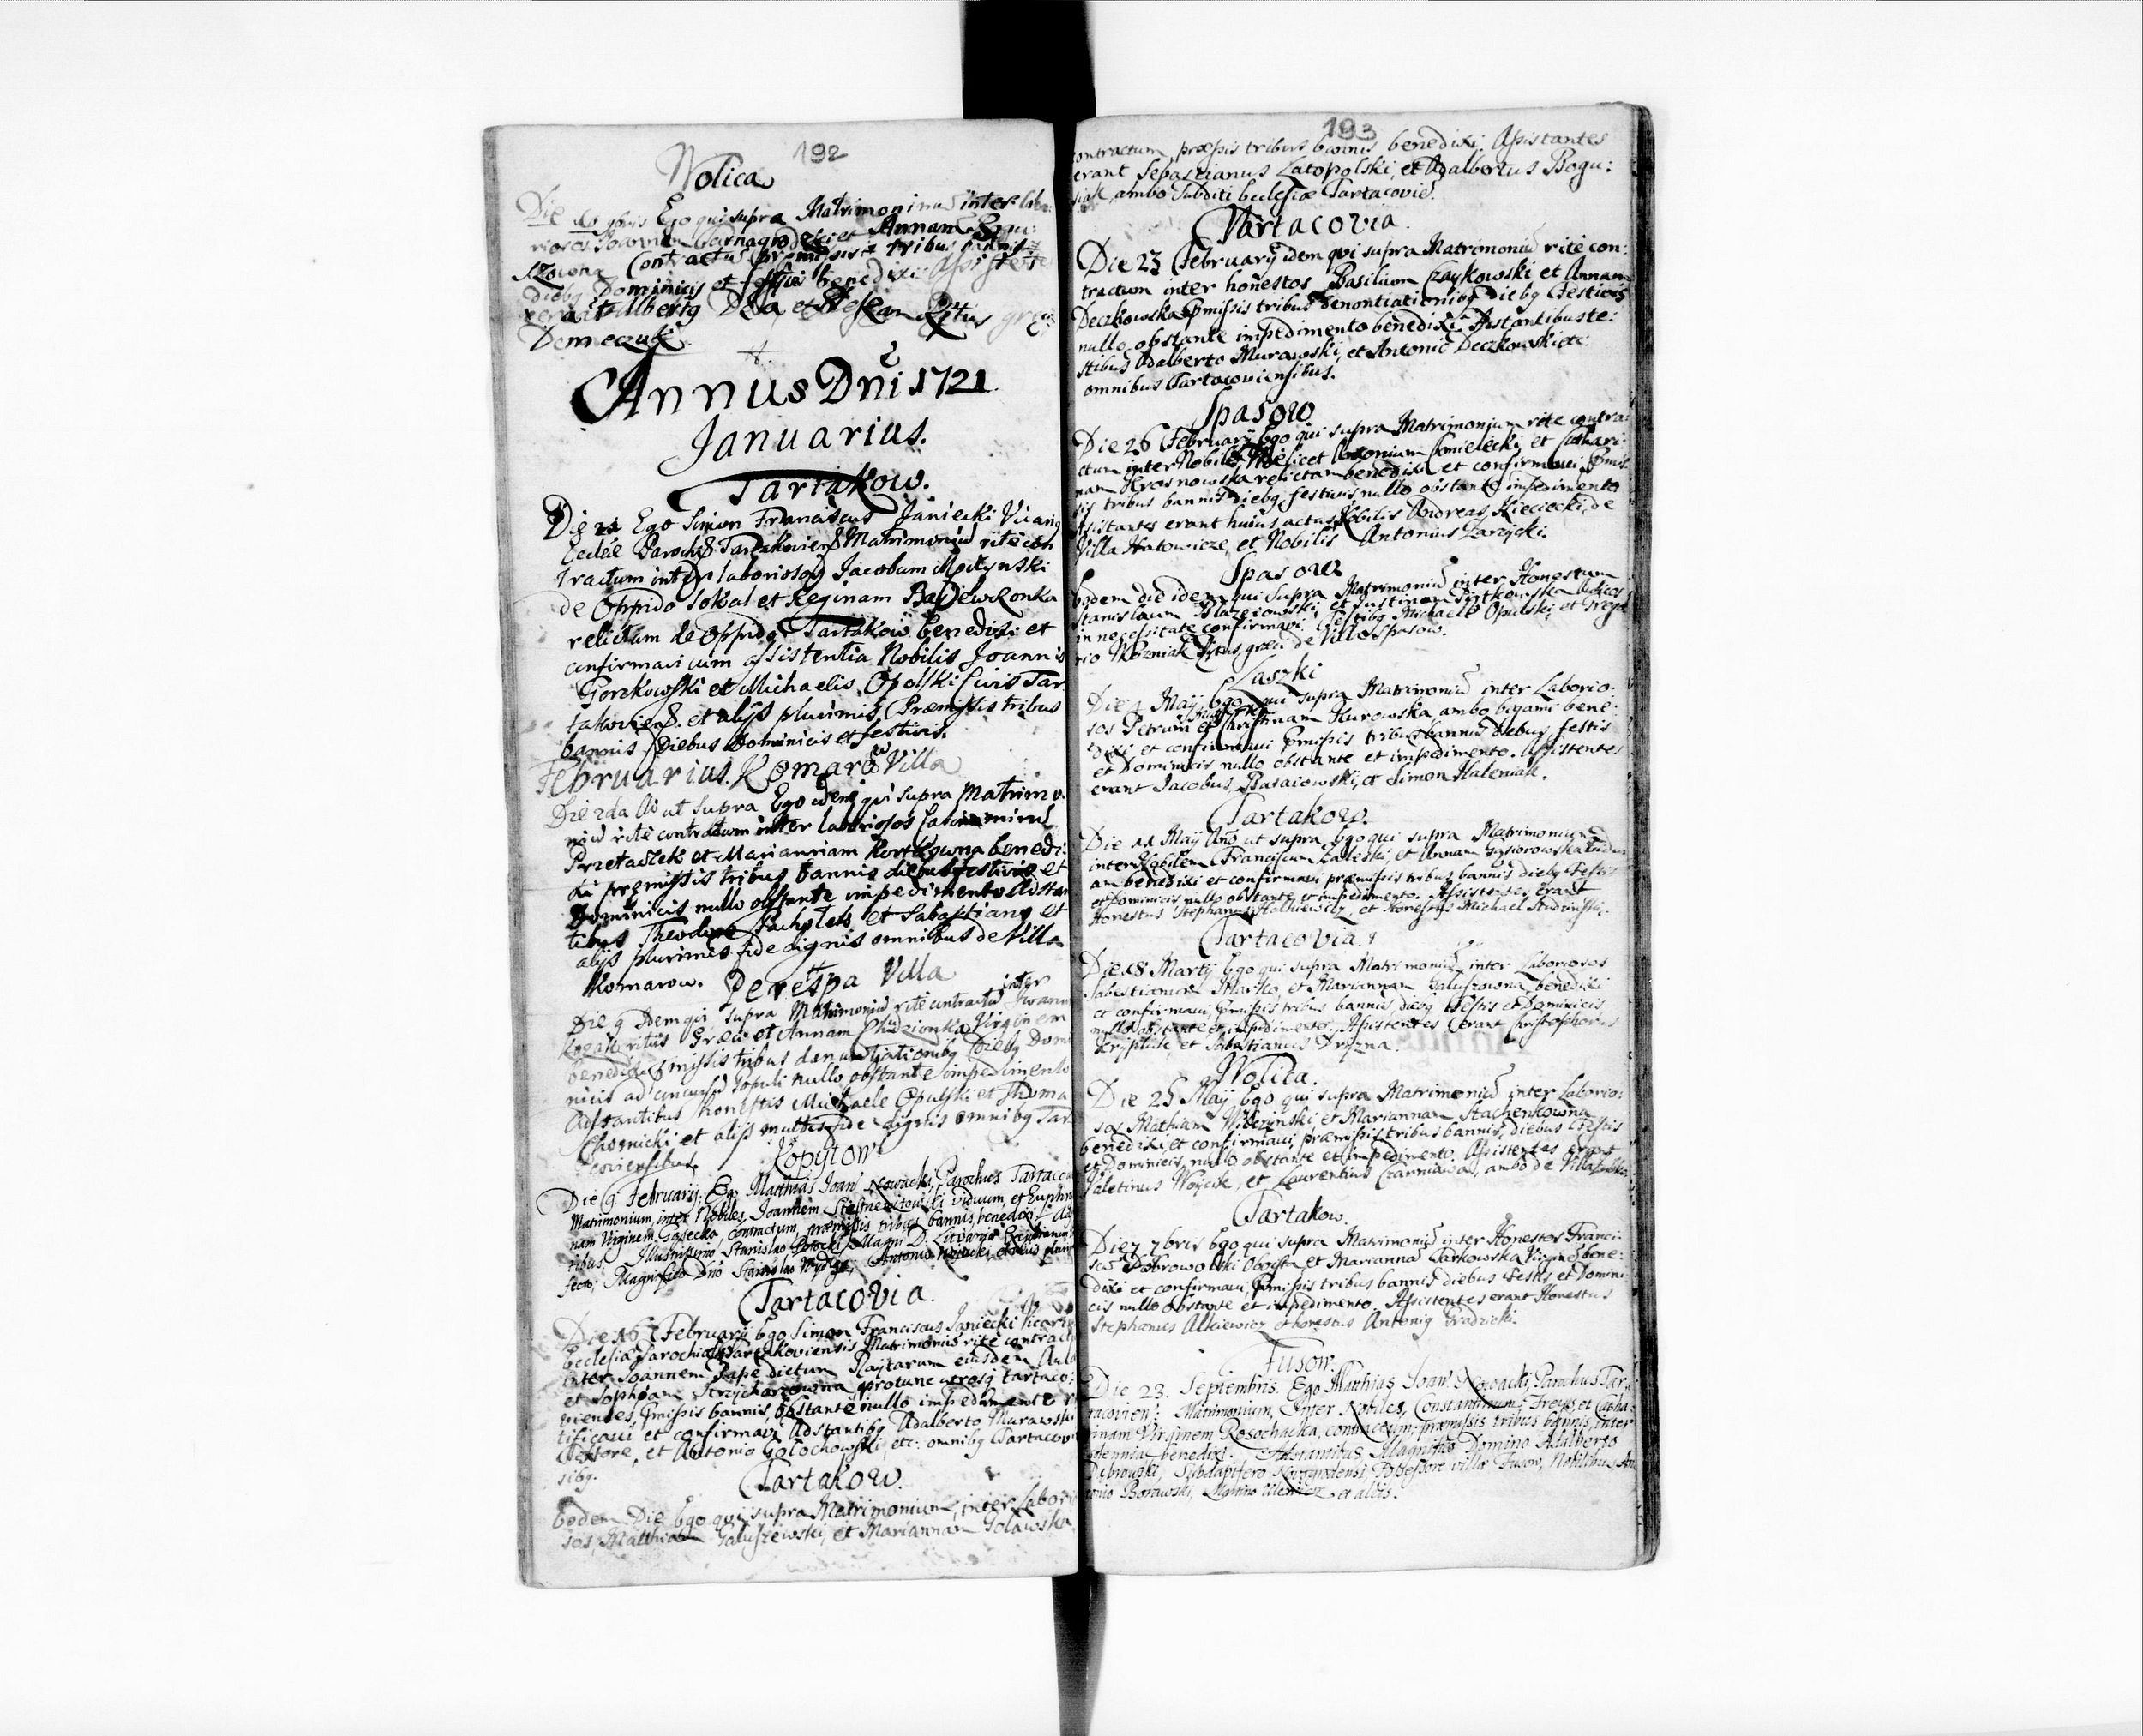 192
Wolica
Die 9bris Ego qui supra Matrimoniũ inter labo:
riosos Joannem Tarnagrodzki et Annam
Contractũ pr̃missis tribus bannis
diebq Dominicis et festis benedixi
Albertq et Stefan Ritus græci
Demczuk
Annus Dni 1721.
Januarius.
Tartakow.
Die 21 Ego Simon Franciscus Janiecki Vicariq
Ecclæ Paroch: Tartakovien: Matrimoniũ ritè con
tractum inter laboriosos Jacobum
de Oppido Sokal et Reginam
relictam de Oppido Tartakow benedixi et
confirmavi cum assistentia Nobilis Joannis
Gorzkowski et Michaelis Opolski Civis Tar
takovien: et alijs plurimis Præmissis tribus
bannis Diebus Dominicis et festivis.
Februarius. Komarow Villa
Die 2da Ao ut supra Ego idem qui supra Matrimo
niũ ritè contractum inter laboriosos Casimirum
Przetaczek et Mariannam benedi:
xi præmissis tribus bannis diebus festivis et
Dominicis nullo obstante impedimento Adstan
tibus Theodoro et Sabastiano et
alijs plurimis fide dignis omnibus de Villa
Komarow.
Perespa Villa
Die 9 Idem qui supra Matrimoniũ ritè contractũ inter Iwann
Kozak ritus Græci et Annam Virginem
benedixi p̃missis tribus denuntiationibq Diebq Domi
nicis ad concursũ Populi nullo obstante impedimento
Adstantibus honestis Michaele Opulski et Thoma
Chornicki et alijs multis fide dignis omnibq Tar
coviensibus.
Kopytow
Die 9. Februarij. Ego Matthias Joan: Nowacki, Parochus Tartacov
Matrimonium, inter Nobiles, Joannem viduum, et Euphro
nam Virginem contractum, præmissis tribus bannis, benedixi. Ad
tibus Illustrissimo Stanislao Potocki Magni D: Litvaniæ
fecto; Magnifico Dno Stanislao Antonio Nowacki, et alijs plurim
Tartacovia.
Die 16 February Ego Simon Franciscus Janiecki Vicariq
Ecclesiæ Parochialis Tartakoviensis Matrimoniũ ritè contract
inter Joannem Sape dictum Raytarum eiusdem
et Sophiam Strycharzowna protunc utrosq tartaco:
vienses, p̃missis bannis, obstante nullo impedimento r
tificavi et confirmavi Adstantibq Adalberto Murawski
et Antonio Gołochowski, etc: omnibq Tartacovi
sibq.
Tartakow.
Eodem Die Ego qui supra Matrimonium, inter Labori
sos, Matthiam Galuszewski, et Mariannam Golawska
193
contractum, præssis tribus bannis benedixi. Assistantes
erant Sebastianus Latopolski, et Adalbertus Bogu:
siak, ambo Subditi Ecclesiæ Tartacovien.
Tartacovia.
Die 23 February idem qui supra Matrimoniũ ritè con:
tractum inter honestos Basilium Czaykowski et Annam
Deczkowska p̃missis tribus denontiationibq diebq Festivis
nullo obstante impedimento benedixi. Astantibus te:
stibus Adalberto Murawski, et Antonio Deczkowski etc
omnibus Tartacoviensibus.
Spasow
Die 26 February Ego qui supra Matrimonium rite contra:
ctum inter Nobiles Videlicet Antonium Chmielecki, et Cathari:
nam Krosnowska relictam benedixi et confirmavi p̃mis:
sis tribus bannis diebq festivis nullo obstante impedimento
Assistantes erant huius actus Nobilis Andreas Kieciecki, de
Villa Hatowicze, et Nobilis Antonius Zarzycki.
Spasow
Eodem die idem qui supra Matrimoniũ inter Honestum
Stanislaum Blazeiowski, et Justinam Piotkowska
in necessitate confirmavi. Testibq Michaele Opulski, et
rio Wozniak Ritus græci de Villa Spasow.
Laszki
Die 4 Maij, Ego qui supra Matrimoniũ inter Laborio:
sos Petrum et Christinam Kurowska ambo bigami bene:
dixi et confirmavi p̃missis tribus bannis diebus festis
et Dominicis nullo obstante et impedimento. Assistentes
erant Jacobus Basaiowski, et Simon Haleniak.
Tartakow.
Die 11 Maij Año ut supra Ego qui supra Matrimonium
inter Nobilem Franciscum Zaleski, et Annam Gąsiorowska
benedixi et confirmavi præmissis tribus bannis diebq Festis
et Dominicis nullo obstante et impedimento. Assistentes erant
Honestus Stephanus Halkiewicz, et Honestus Michael Studzinski.
Tartacovia.
Die 18 Martij Ego qui supra Matrimoniũ inter Laboriosos
Sabestianum Harko, et Mariannam Galuszowna, benedixi
et confirmavi, p̃missis tribus bannis, diebq Festis et Dominicis
nullo obstante et impedimento. Assistentes erant Christophorus
Krystuk et Sabastianus Dryzna.
Wolica.
Die 25 Maij Ego qui supra Matrimoniũ inter Laborio:
sos Mathiam Widerinski, et Mariannam Stachenkowna
benedixi, et confirmavi, præmissis tribus bannis, diebus Festis
et Dominicis nullo obstante et impedimento. Assistentes erant
Valetinus Woycik, et Laurentius Czarniawa, ambo de Villa
Tartakow.
Die 7 7bris Ego qui supra Matrimoniũ inter Honestos Franci:
scũ Dobrowolski et Marianna Tarkowska Virginẽ bene:
dixi et confirmavi, p̃missis tribus bannis diebus Festis et Domini:
cis nullo obstante et impedimento. Assistentes erant Honestus
Stephanus Alkiewicz et honestus Antoniq Gradzicki.
Fusow.
Die 23. Septembris. Ego Matthias Joan: Nowacki, Parochus Tar:
tacovien: Matrimonium, Inter Nobiles, Constantinum Freys, et Catha:
rinam Virginem Rosochacka, contractum; præmissis tribus bannis, inter
solemnia benedixi. Astantibus Magnifico Domino Adalberto
Dębowski, Subdapifero Novogrodensi, Possessore villæ Fusow, Nobilibus An
tonio Borawski, Martino et aliis.